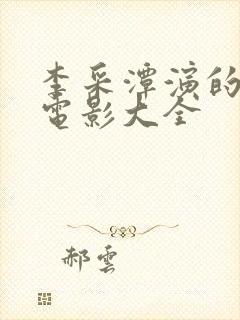 李采潭演的
電影大全
郝雲